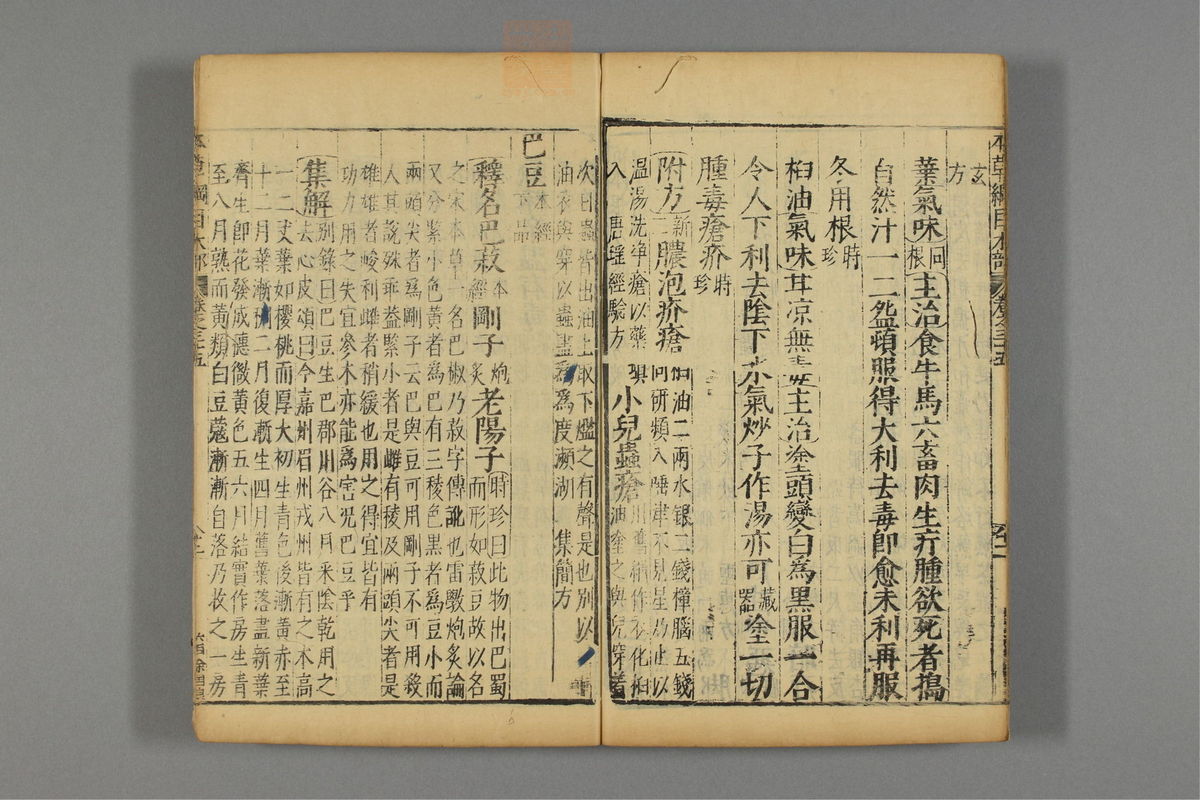 本草綱目木部 卷之三十五
玄
方
葉氣味同根主治食牛馬六畜肉生疔腫欲死者搗
自然汁一二盌頓服得大利去毒即愈未利再服
冬用根時珍
桕油氣味甘凉無毒主治塗頭變白為黑服一合
令人下利去陰下水氣炒子作湯亦可藏器塗一切
腫毒瘡疥時珍
附方新二膿泡疥瘡桕油二兩水銀二錢樟腦五錢同研頻入唾津不見星乃止以
溫湯洗淨瘡以藥填入唐瑤經驗方小兒蟲瘡用舊絹作衣化桕油塗之與兒穿着
次日蟲皆出油上取下爁之有聲是也別以
油衣與穿以蟲盡爲爲度瀕湖集簡方
巴豆本經下品
釋名巴菽本經剛子炮炙老陽子時珍曰此物出巴蜀而形如菽豆故以名
之宋本草一名巴椒乃菽字傳訛也雷斅炮炙論
又分緊小色黃者爲巴有三稜色黑者爲豆小而
兩頭尖者爲剛子云巴與豆可用剛子不可用殺
人其說殊乖蓋緊小者是雌有稜及兩頭尖者是
雄雄者峻利雌者稍緩也用之得宜皆有
功力用之失宜參朮亦能爲害況巴豆乎
集解別錄曰巴豆生巴郡川谷八月采陰乾用之去心皮頌曰今嘉州眉州戎州皆有之木高
一二丈葉如櫻桃而厚大初生青色後漸黃赤至
十二月葉漸凋二月復漸生四月舊葉落盡新葉
齊生即花發成穗微黃色五六月結實作房生青
至八月熟而黃類白豆蔻漸漸自落乃收之一房
本草綱目木部 卷之三十五